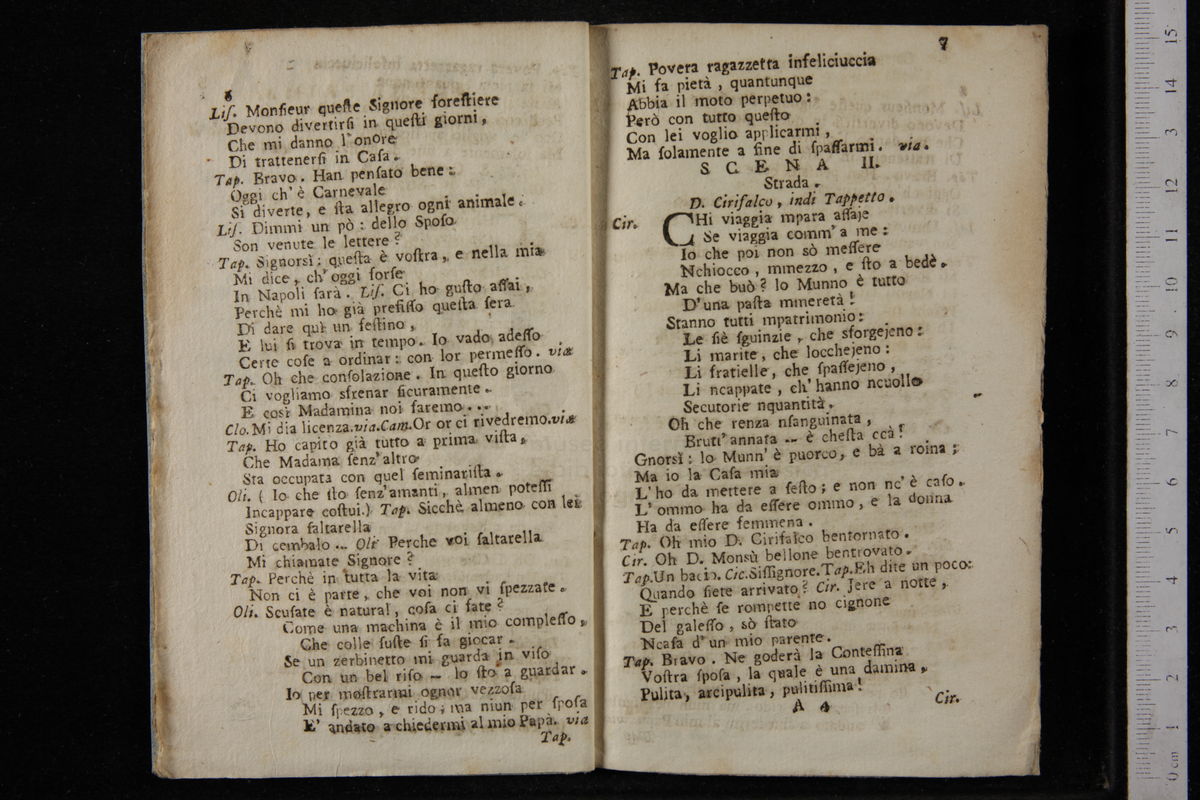 6
Liſ. Monſieur queſte Signore foreſtiere
Devono divertirſi in queſti giorni,
Che mi danno l'onore
Di trattenerſi in Caſa.
Tap. Bravo. Han penſato bene:
Oggi ch' è Carnevale
Si diverte, e ſta allegro ogni animale.
Liſ. Dimmi un pò: dello Spoſo
Son venute le lettere?
Tap. Signorsì: queſta è voſtra, e nella mia
Mi dice, ch' oggi forſe
In Napoli ſarà. Liſ. Ci ho guſto aſſai,
Perchè mi ho già prefiſſo queſta ſera
Di dare quì un feſtino,
E lui ſi trova in tempo. Io vado adeſſo
Certe coſe a ordinar: con lor permeſſo. via
Tap. Oh che conſolazione. In queſto giorno
Ci vogliamo sfrenar ſicuramente.
E così Madamina noi faremo...
Clo. Mi dia licenza. via. Cam. Or or ci rivedremo. via
Tap. Ho capito già tutto a prima viſta,
Che Madama ſenz' altro
Sta occupata con quel ſeminariſta.
Oli. ( Io che ſto ſenz' amanti, almen poteſſi
Incappare coſtui.) Tap. Sicchè almeno con lei
Signora ſaltarella
Di cembalo... Oli. Perche voi ſaltarella
Mi chiamate Signore?
Tap. Perchè in tutta la vita
Non ci è parte, che voi non vi ſpezzate.
Oli. Scuſate è natural, coſa ci fate?
Come una machina è il mio compleſſo,
Che colle ſuſte ſi fa giocar.
Se un zerbinetto mi guarda in viſo
Con un bel riſo — lo ſto a guardar.
Io per moſtrarmi ognor vezzoſa
Mi ſpezzo, e rido; ma niun per ſpoſa
E' andato a chiedermi al mio Papà. via
Tap.
7
Tap. Povera ragazzetta infeliciuccia
Mi fa pietà, quantunque
Abbia il moto perpetuo:
Però con tutto queſto
Con lei voglio applicarmi,
Ma ſolamente a fine di ſpaſſarmi. via.
SCENA II.
Strada.
D. Cirifalco, indi Tappetto.
Cir. CHi viaggia mpara aſſaje
Se viaggia comm' a me:
Io che poi non sò meſſere
Nchiocco, mmezzo, e ſto a bedè.
Ma che buò? lo Munno è tutto
D' una paſta mmeretà!
Stanno tutti mpatrimonio:
Le ſiè ſguinzie, che sforgejeno:
Li marite, che locchejeno:
Li fratielle, che ſpaſſejeno,
Li ncappate, ch' hanno ncuollo
Secutorie nquantità.
Oh che renza nſanguinata,
Brutt' annata — è cheſta ccà!
Gnorsì: lo Munn' è puorco, e bà a roina;
Ma io la Caſa mia
L' ho da mettere a ſeſto; e non nc' è caſo.
L' ommo ha da eſſere ommo, e la donna
Ha da eſſere femmena.
Tap. Oh mio D. Cirifalco bentornato.
Cir. Oh D. Monsù bellone bentrovato.
Tap. Un bacio. Cic. Siſſignore. Tap. Eh dite un poco:
Quando ſiete arrivato? Cir. Jere a notte,
E perchè ſe rompette no cignone
Del galeſſo, sò ſtato
Ncaſa d' un mio parente.
Tap. Bravo. Ne goderà la Conteſſina
Voſtra ſpoſa, la quale è una damina,
Pulita, arcipulita, pulitiſſima!
A 4
Cir.